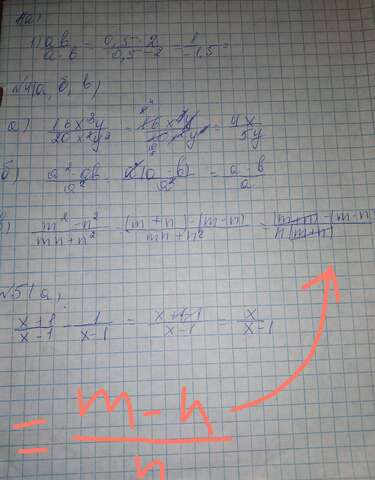 1) ab/a-b = 0,5-2/0,5-2 = 1/-1,5 =
№4(а, б, в)
а) 16x³y/20x²y² = 16x³y/20x²y² = 4x/5y
б) a²-ab/a² = a(a-b)/a² = a-b/a
в) m²-n²/mn+n² = (m+n)-(m-n)/mn+n² = (m+n)-(m-n)/n(m+n)
№5(а)
x+1/x-1 - 1/x-1 = x+1-1/x-1 = x/x-1
= m-n/n